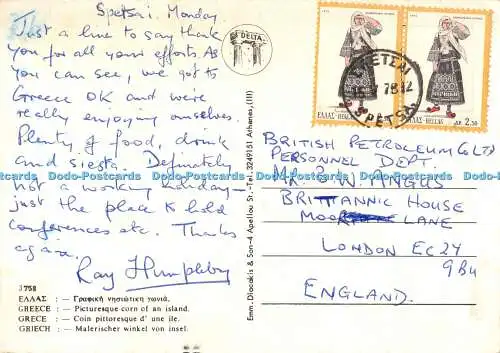 Spetsai. Monday.
Just a line to say thank
you for all your efforts. As
you can see, we got to
Greece OK and we're
really enjoying ourselves.
Plenty of food, drink
and siesta. Definately
not a working holiday –
just the place to hold
conferences etc. Thanks
again.
Ray Humphrey
3758
ΕΛΛΑΣ : — Γραφική νησιώτικη γωνιά.
GREECE : — Picturesque corn of an island.
GRECE : — Coin pittoresque d' une ile.
GRIECH : — Malerischer winkel von insel.
DELTA
Emm. Diacakis & Son-4 Apollou St.-Tel. 3249151 Athens, (111)
ΕΛΛΑΣ-HELLAS
ΕΛΛΑΣ-HELLAS ΔΡ 2,50
SPETSAI
BRITISH PETROLEUM Co LTD
PERSONNEL DEPT.
MR. B. W. ANGUS
BRITTANNIC HOUSE
MOOR LANE
LONDON EC2Y
9BU
ENGLAND.
Dodo-Postcards Dodo-Postcards Dodo-Postcards Dodo-Postcards